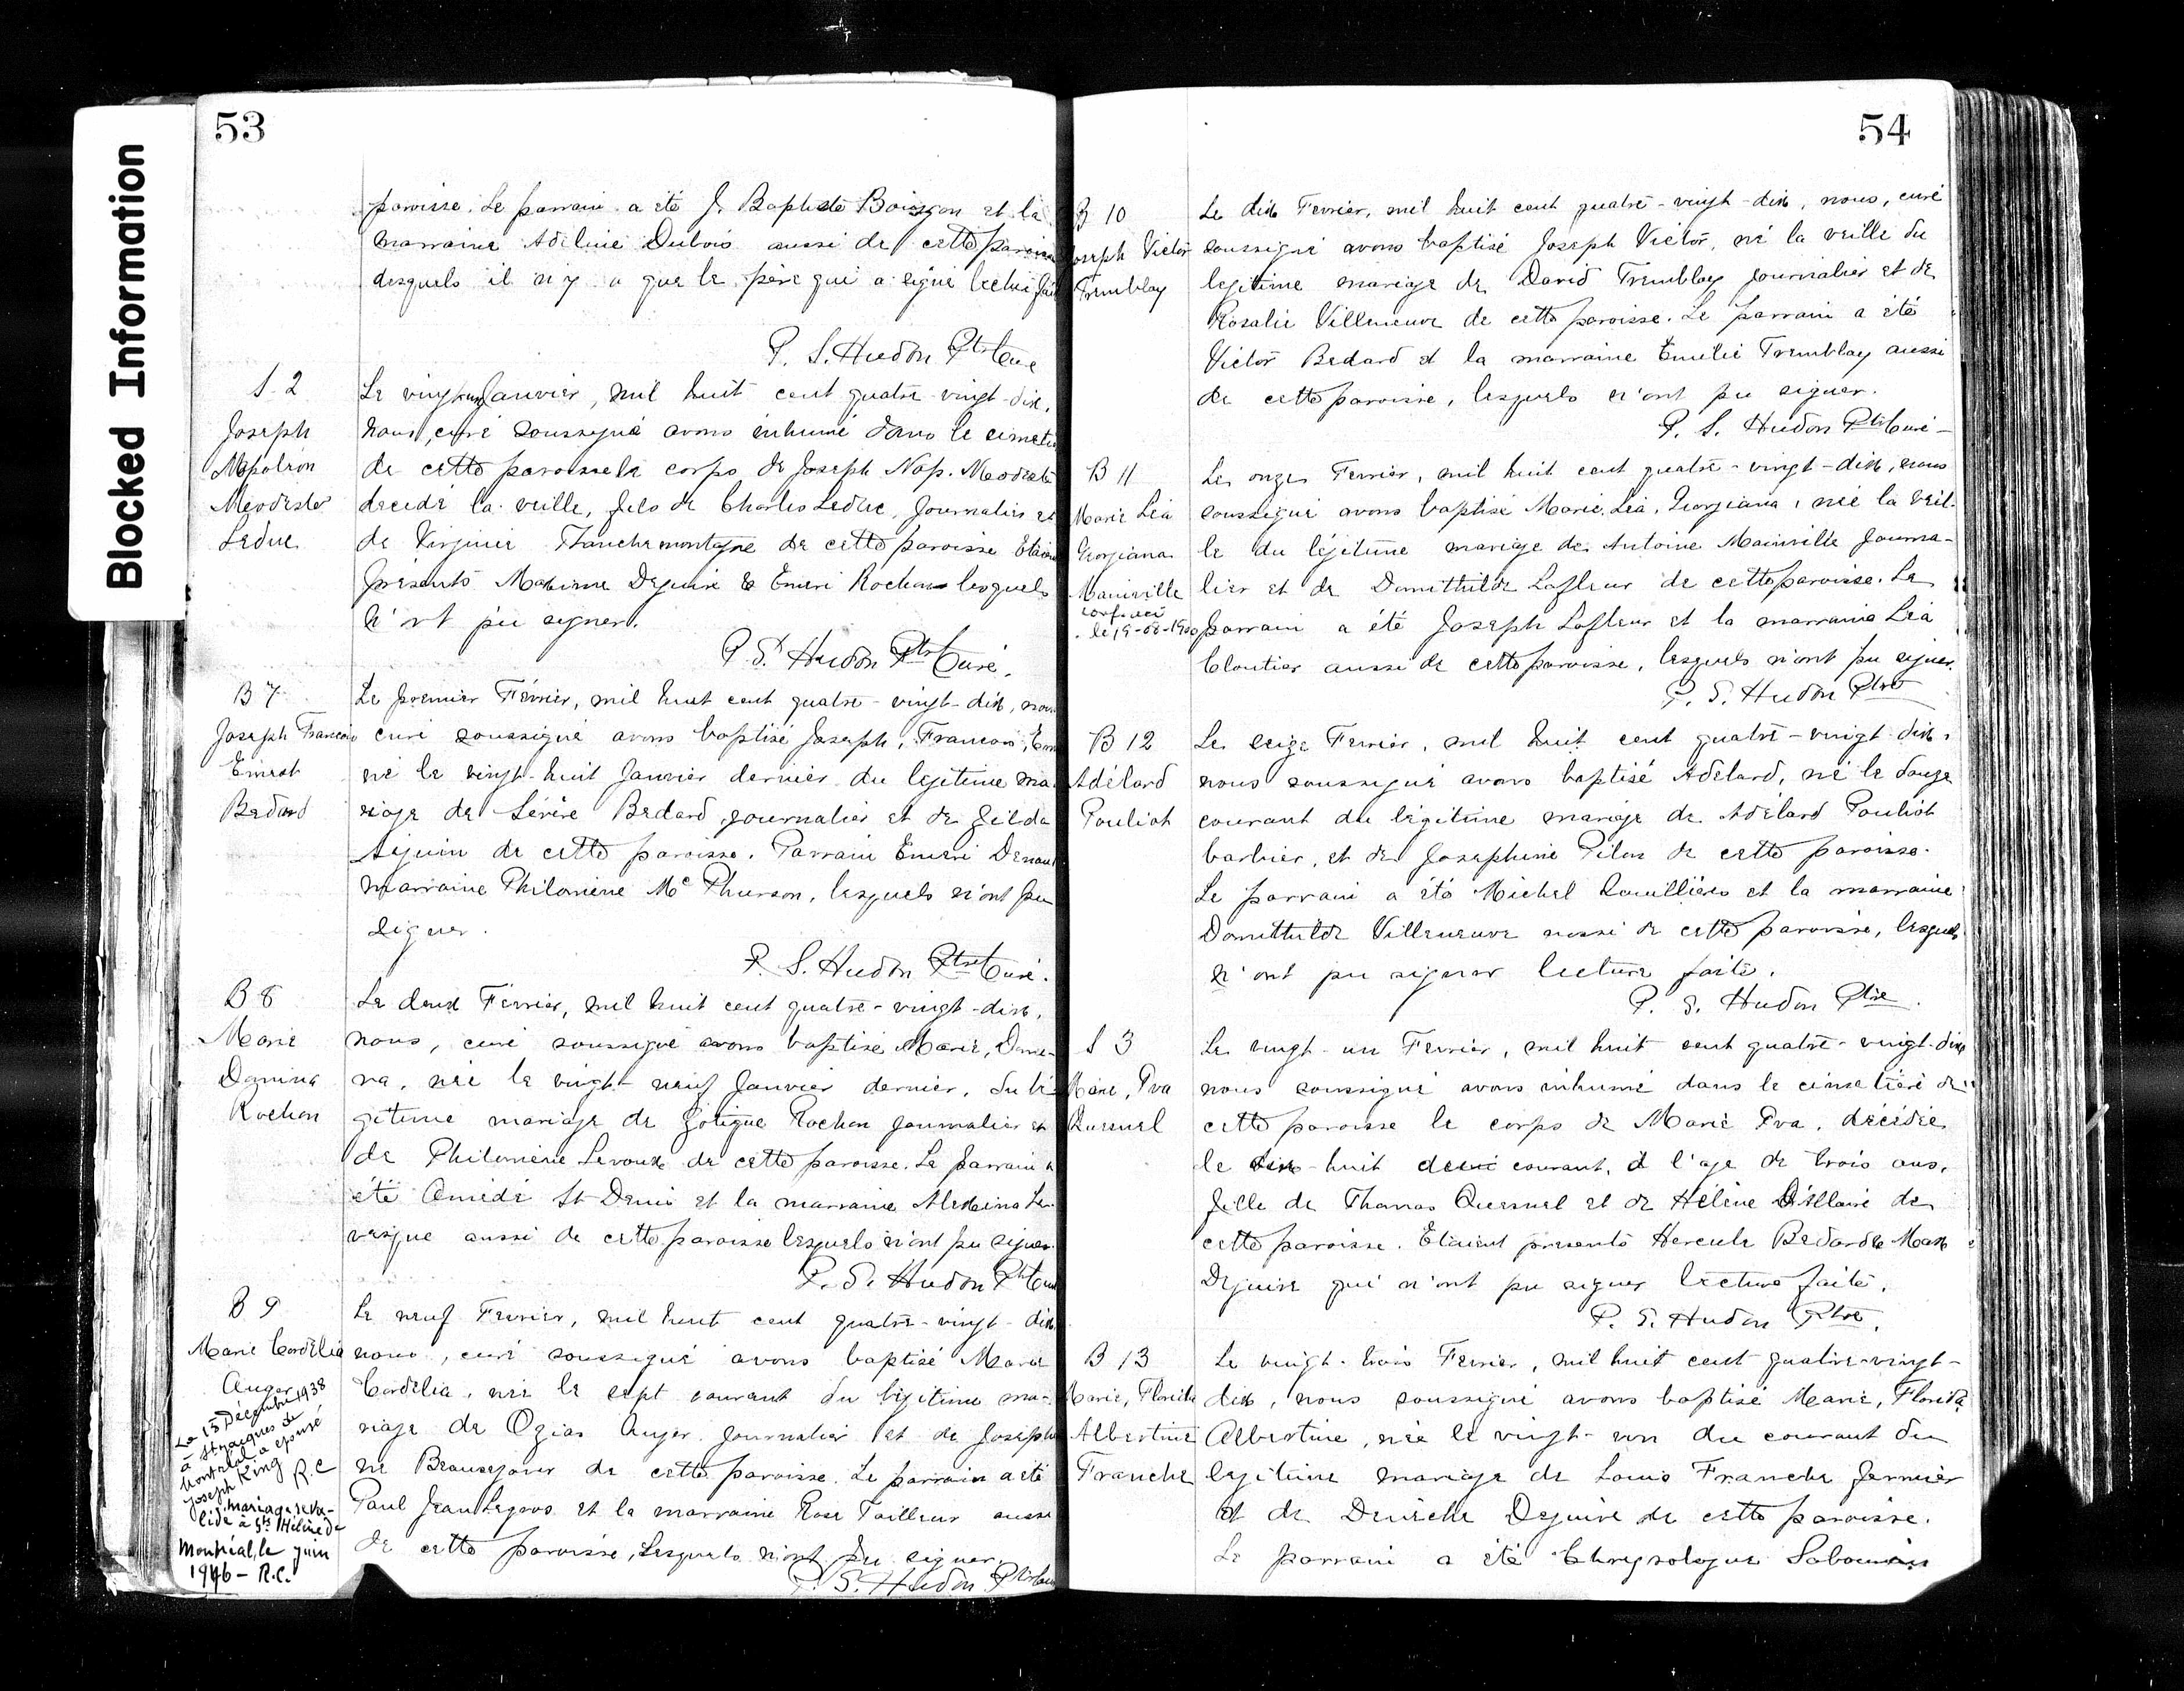 Blocked Information
53
paroisse. Le parrain a été J. Baptiste Boisson et la
marraine Adeline Dubois aussi de cette paroisse
desquels il n'y a que le père qui a signé lecture faite
P. S. Hudon Ptre Curé
S. 2
Joseph
Napoléon
Modeste
Leduc
Le vingt Janvier, mil huit cent quatre-vingt-dix,
Nous, curé soussigné avons inhumé dans le cimetie
de cette paroisse le corps de Joseph Nap. Modeste
décédé la veille, fils de Charles Leduc, Journalier et
de Virginie Tranchemontagne de cette paroisse Etaient
présents Maxime Dequire & Emeri Rochon lesquels
n'ont pu signer.
P. S. Hudon Ptre Curé.
B 7
Joseph Francois
Ernest
Bedard
Le premier Février, mil huit cent quatre-vingt-dix, nous
curé soussigné avons baptisé Joseph, Francois, Ern
né le vingt-huit Janvier dernier du légitime ma
riage de Sévère Bedard, journalier et de Zilda
Séguin de cette paroisse. Parrain Emeri Denault
marraine Philomène Mc Phurson, lesquels n'ont pu
signer.
P. S. Hudon Ptre Curé.
B 8
Marie
Domina
Rochon
Le deux Février, mil huit cent quatre-vingt-dix,
nous, curé soussigné avons baptisé Marie, Domi-
na, née le vingt-neuf Janvier dernier, du lé
gitime mariage de Zotique Rochon journalier et
de Philomène Leroux de cette paroisse. Le parrain a
été Amédé St Denis et la marraine Alexina Le-
vesque aussi de cette paroisse lesquels n'ont pu signer.
P. S. Hudon Ptre Curé
B 9
Marie Cordélia
Auger
Le 15 Décembre 1938
à St Jacques de
Montréal a épousé
Joseph King
R.C
mariage re va-
lidé à Ste Hélène de
Montréal, le juin
1946 - R.C.
Le neuf Fevrier, mil huit cent quatre-vingt-dix
nous, curé soussigné avons baptisé Marie
Cordélia, née le sept courant du légitime ma-
riage de Ozias Auger Journalier et de Joseph
ne Beausejour de cette paroisse. Le parrain a été
Paul Jean Legros et la marraine Rose Tailleur aussi
de cette paroisse, lesquels n'ont pu signer.
P. S. Hudon Ptre Curé
54
B 10
Joseph Victor
Tremblay
Le dix Fevrier, mil huit cent quatre-vingt-dix, nous, curé
soussigné avons baptisé Joseph Victor, né la veille du
legitime mariage de David Tremblay Journalier et de
Rosalie Villeneuve de cette paroisse. Le parrain a été
Victor Bedard et la marraine Emelie Tremblay aussi
de cette paroisse, lesquels n'ont pu signer.
P. S. Hudon Ptre Curé -
B 11
Marie Léa
Georgiana
Mainville
le 19-
Le onze Fevrier, mil huit cent quatre-vingt-dix, nous
soussigné avons baptisé Marie, Léa, Georgiana, née la veil-
le du légitime mariage de Antoine Mainville Journa-
lier et de Domithilde Lafleur de cette paroisse. Le
parrain a été Joseph Lafleur et la marraine Léa
Cloutier aussi de cette paroisse, lesquels n'ont pu signer.
P. S. Hudon Ptre
B 12
Adélard
Pouliot
Le seize Fevrier, mil huit cent quatre-vingt dix,
nous soussigné avons baptisé Adélard, né le douze
courant du légitime mariage de Adélard Pouliot
barbier, et de Josephine Pilon de cette paroisse.
Le parrain a été Michel Rouillière et la marraine
Domithilde Villeneuve aussi de cette paroisse, lesquels
n'ont pu signer lecture faite.
P. S. Hudon Ptre.
S 3
Marie, Eva
Quesnel
Le vingt-un Fevrier, mil huit cent quatre-vingt-dix
nous soussigné avons inhumé dans le cimetière de
cette paroisse le corps de Marie Eva, décédée
le dix-huit courant, à l'age de trois ans,
fille de Thomas Quesnel et de Hélène Dallaire de
cette paroisse. Etaient presents Hercule Bedard & Max
Dequire qui n'ont pu signer lecture faite.
P. S. Hudon Ptre.
B 13
Marie, Florida
Albertine
Franche
Le vingt-trois Fevrier, mil huit cent quatre-vingt-
dix, nous soussigné avons baptisé Marie, Florida
Albertine, née le vingt-un du courant du
legitime mariage de Louis Franche fermier
et de Dequire de cette paroisse.
Le parrain a été Chrysologue Sabourin